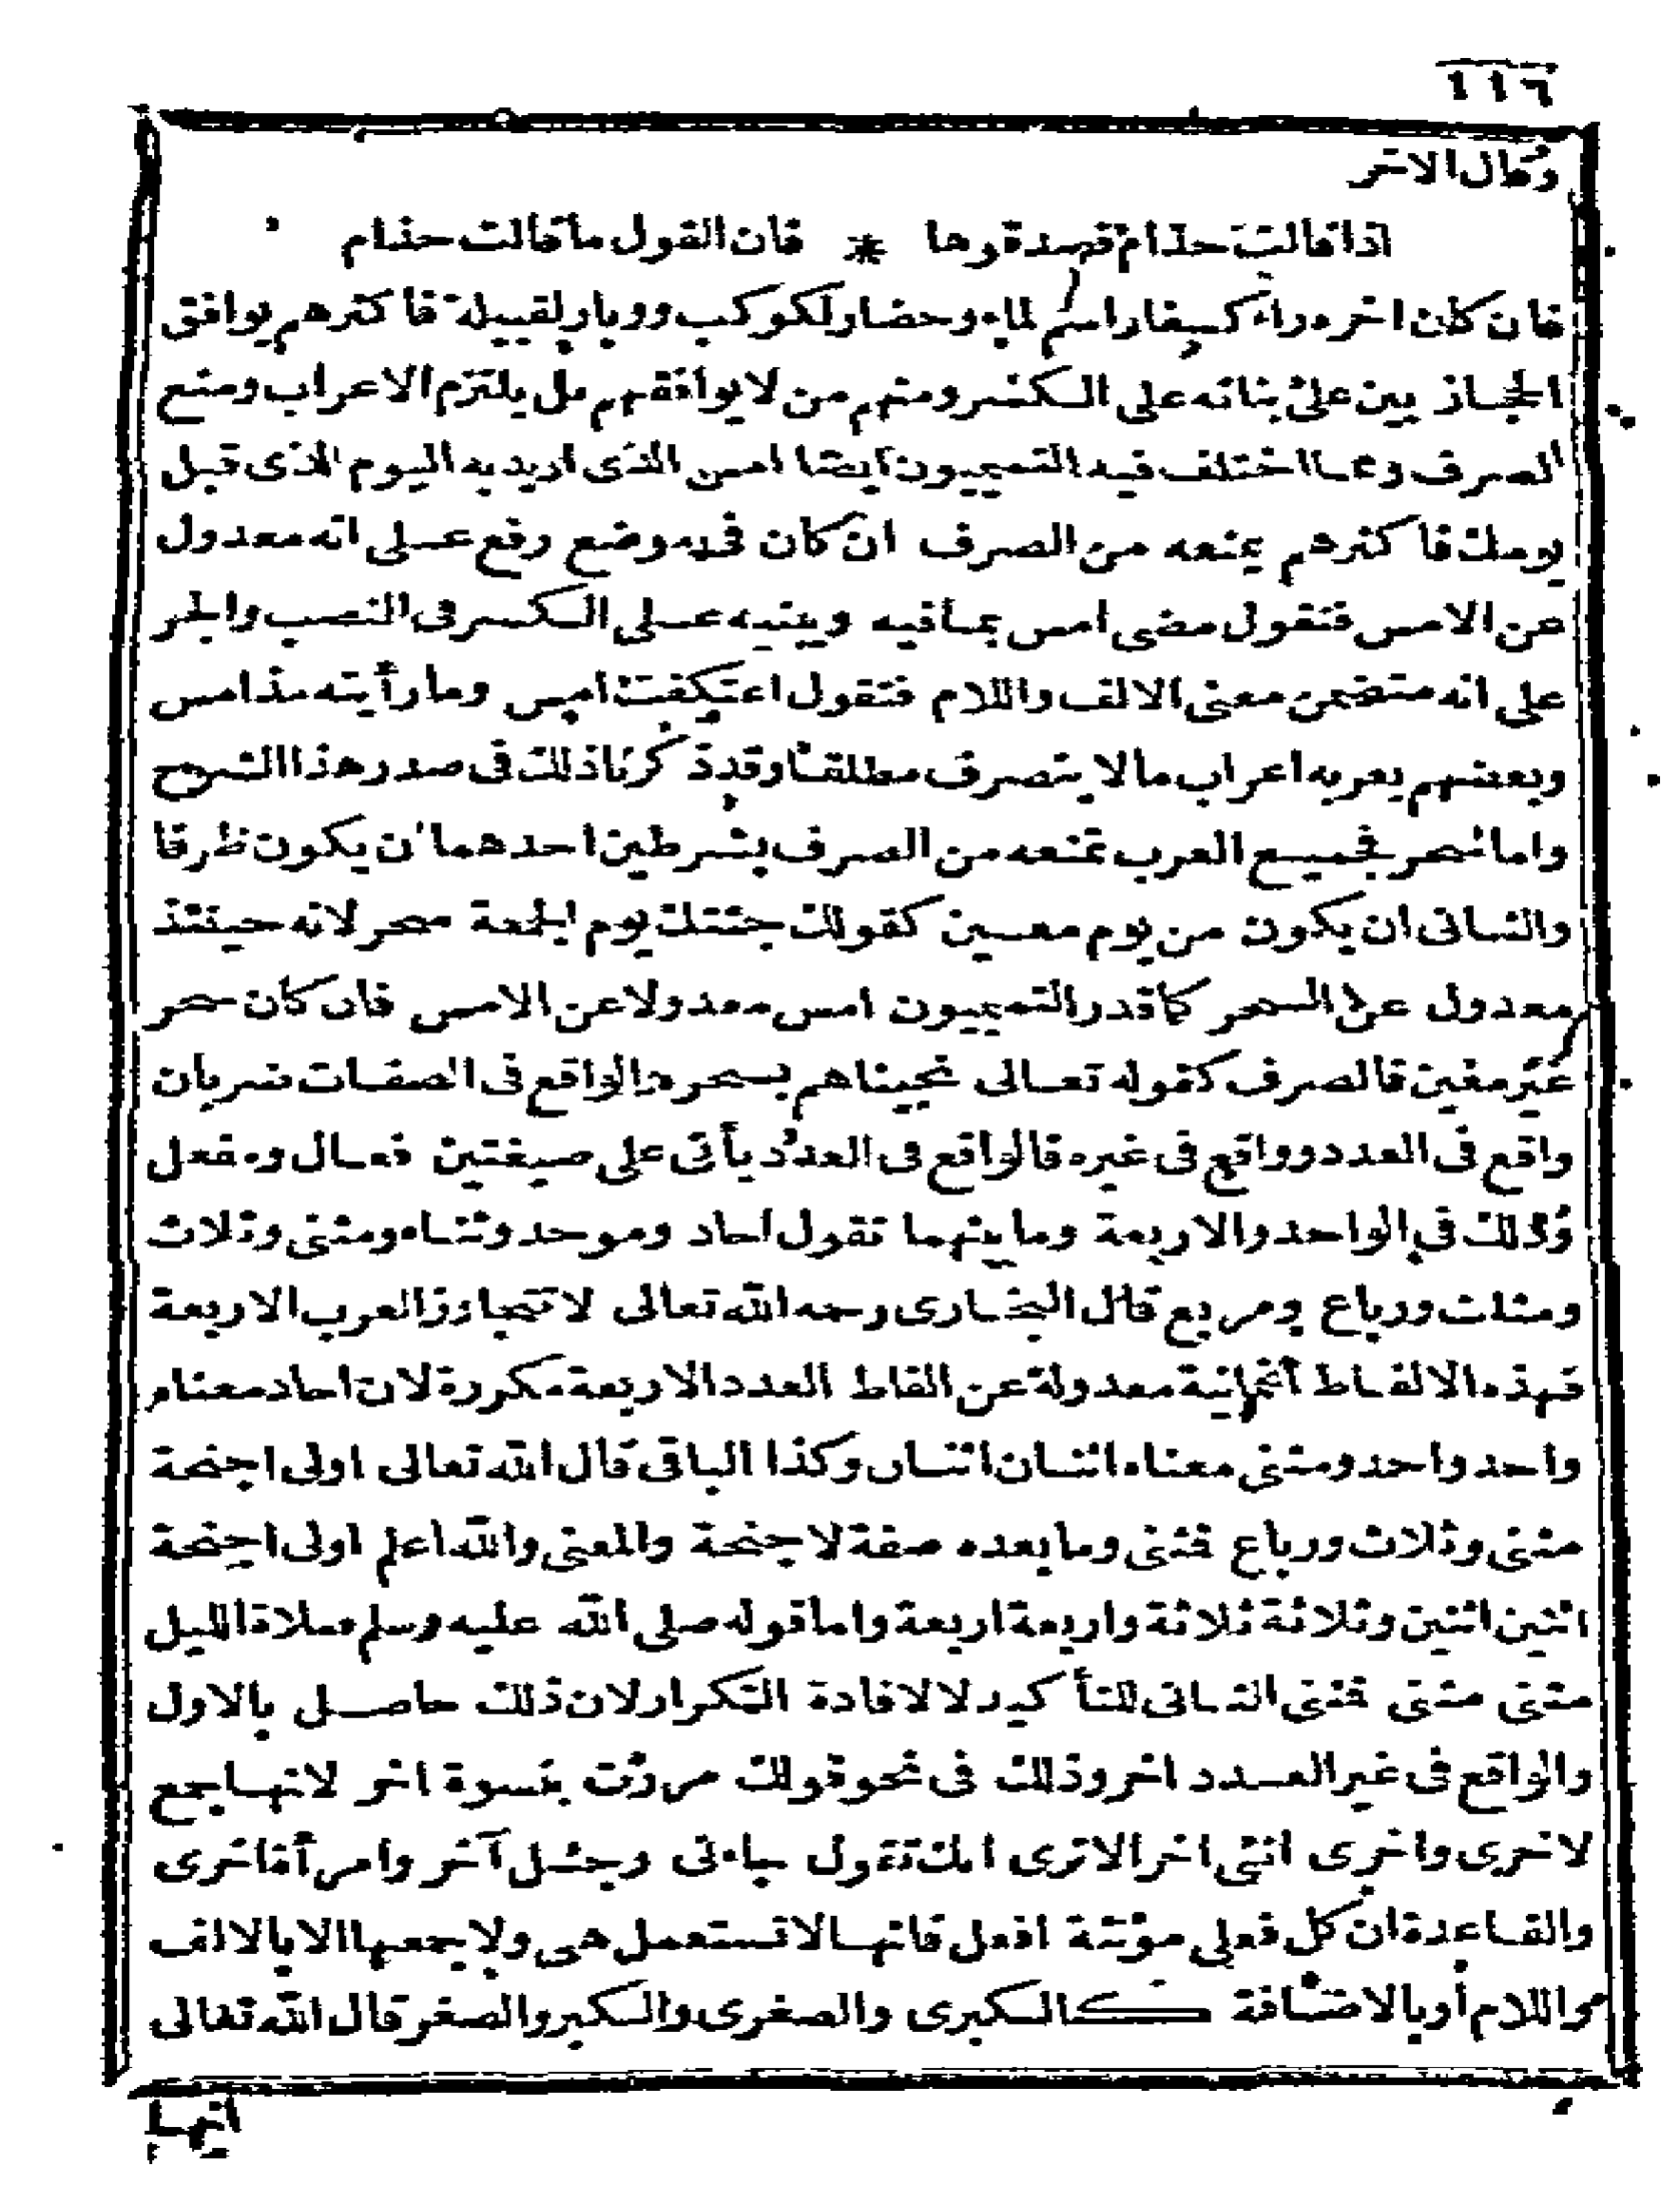 ١١٦
وقال الآخر
اذا قالت حذام فصدقوها * فان القول ما قالت حذام
فان كان اخره راء كسفار اسم لماء وحضار لكوكب ووبار لقبيلة فاكثرهم يوافق
الحجازيين على بنائه على الكسر ومنهم من لا يوافقهم بل يلتزم الاعراب ومنع
الصرف ومما اختلف فيه التميميون ايضا امس الذى اريد به اليوم الذى قبل
يومك فاكثرهم يمنعه من الصرف ان كان فى موضع رفع على انه معدول
عن الامس فتقول مضى امس بما فيه ويبنيه على الكسر فى النصب والجر
على انه متضمن معنى الالف واللام فتقول اعتكفت امس وما رأيته مذ امس
وبعضهم يعربه اعراب ما لا ينصرف مطلقا وقد ذكرنا ذلك فى صدر هذا الشرح
واما سحر فجميع العرب تمنعه من الصرف بشرطين احدهما ان يكون ظرفا
والثانى ان يكون من يوم معين كقولك جئتك يوم الجمعة سحر لانه حينئذ
معدول عن السحر كما قدر التميميون امس معدولا عن الامس فان كان سحر
غير معين فالصرف كقوله تعالى نجيناهم بسحر والواقع فى الصفات ضربان
واقع فى العدد وواقع فى غيره فالواقع فى العدد يأتى على صيغتين فعال ومفعل
وذلك فى الواحد والاربعة وما بينهما تقول احاد وموحد وثناء ومثنى وثلاث
ومثلث ورباع ومربع قال البخارى رحمه الله تعالى لا تتجاوز العرب الاربعة
فهذه الالفاظ الثمانية معدولة عن الفاظ العدد الاربعة مكررة لان احاد معناه
واحد واحد ومثنى معناه اثنان اثنان وكذا الباقى قال الله تعالى اولى اجنحة
مثنى وثلاث ورباع فمثنى وما بعده صفة لاجنحة والمعنى والله اعلم اولى اجنحة
اثنين اثنين وثلاثة ثلاثة واربعة اربعة واما قوله صلى الله عليه وسلم صلاة الليل
مثنى مثنى فمثنى الثانى للتأكيد لا لافادة التكرار لان ذلك حاصل بالاول
والواقع فى غير العدد اخر وذلك فى نحو قولك مررت بنسوة اخر لانها جمع
لاخرى واخرى انثى اخر الا ترى انك تقول جاءنى رجل آخر وامرأة اخرى
والقاعدة ان كل فعلى مؤنثة افعل فانها لا تستعمل هى ولا جمعها الا بالالف
واللام أو بالاضافة كالكبرى والصغرى والكبر والصغر قال الله تعالى
انها